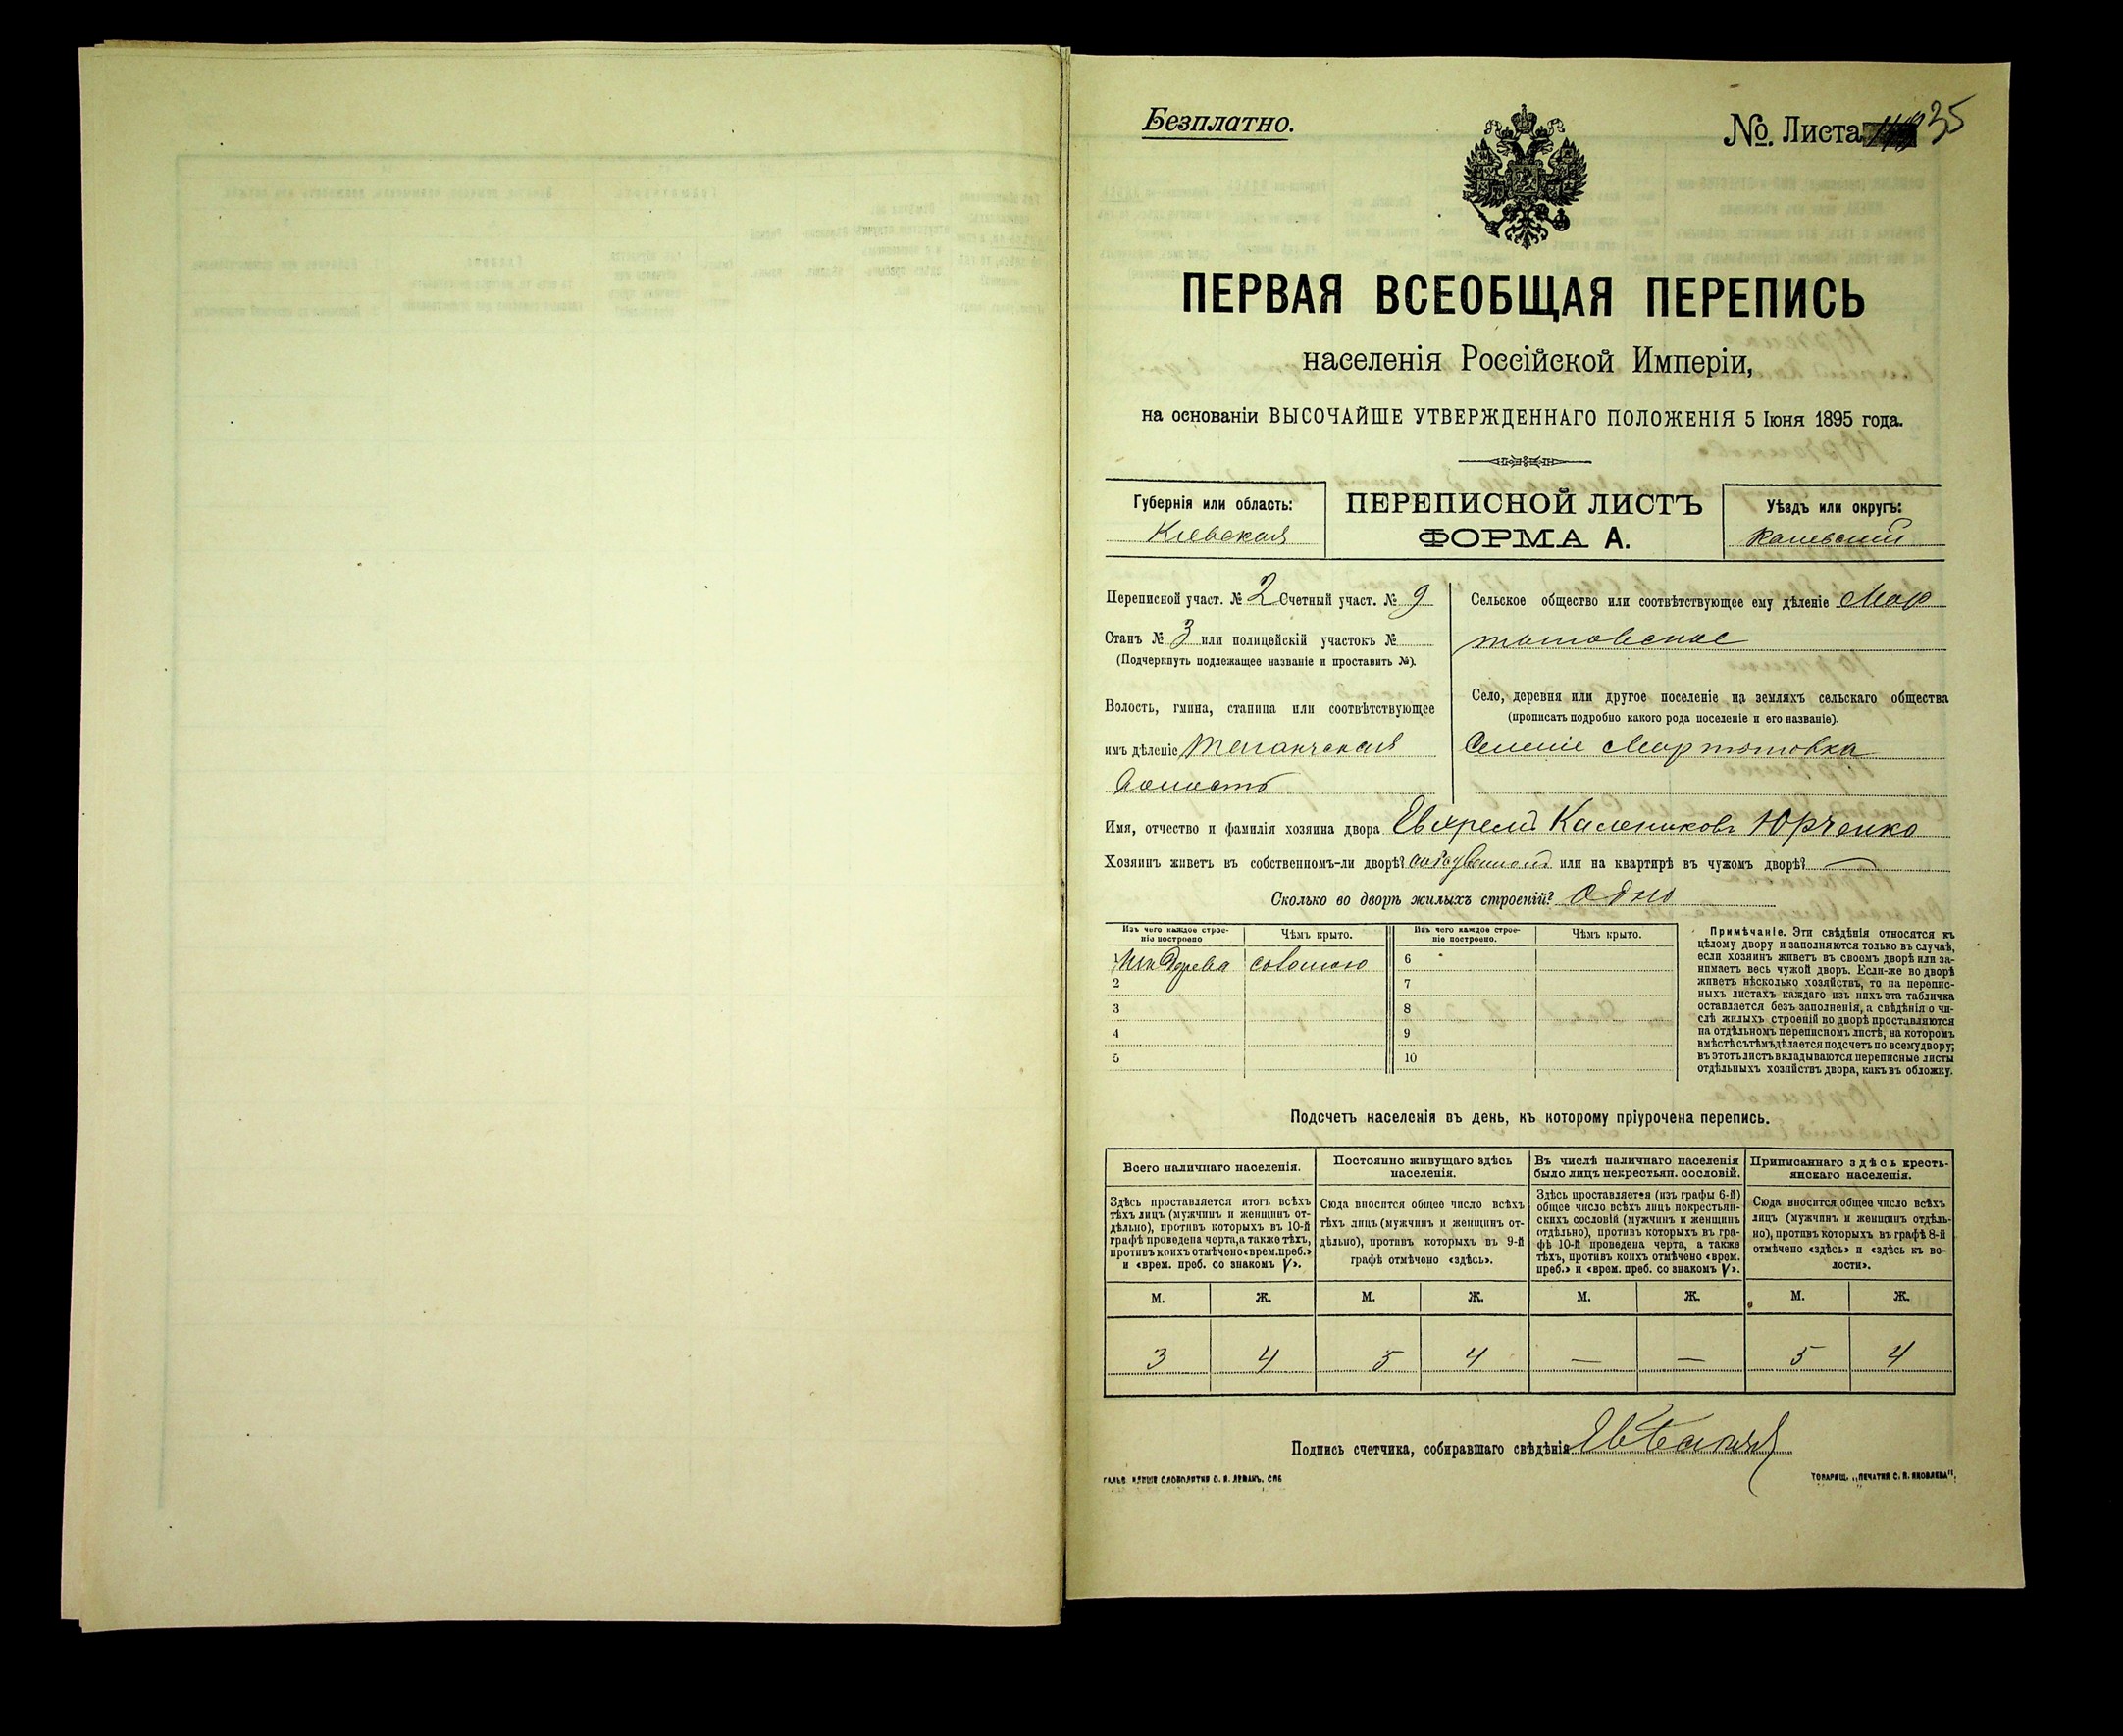 Безплатно.
№. Листа 35
ПЕРВАЯ ВСЕОБЩАЯ ПЕРЕПИСЬ
населенія Россійской Имперіи,
на основаніи ВЫСОЧАЙШЕ УТВЕРЖДЕННАГО ПОЛОЖЕНІЯ 5 Іюня 1895 года.
Губернія или область:
Кіевская
ПЕРЕПИСНОЙ ЛИСТЪ
ФОРМА А.
Уѣздъ или округъ:
Каневский
Переписной участ. № 2 Счетный участ. № 9
Станъ № 3 или полицейскій участокъ №
(Подчеркнуть подлежащее названіе и проставить №).
Волость, гмина, станица или соотвѣтствующее
имъ дѣленіе
волость
Сельское общество или соотвѣтствующее ему дѣленіе Мар
тыновское
Село, деревня или другое поселеніе на земляхъ сельскаго общества
(прописать подробно какого рода поселеніе и его названіе).
Селеніе Мартыновка
Имя, отчество и фамилія хозяина двора Евфремъ Калениковъ Юрченко
Хозяинъ живетъ въ собственномъ-ли дворѣ? или на квартирѣ въ чужомъ дворѣ? —
Сколько во дворѣ жилыхъ строеній? одно
Изъ чего каждое строе-
ніе построено
Чѣмъ крыто.
Изъ чего каждое строе-
ніе построено.
Чѣмъ крыто.
1 Изъ дерева соломою 6
2 7
3 8
4 9
5 10
Примѣчаніе. Эти свѣдѣнія относятся къ
цѣлому двору и заполняются только въ случаѣ,
если хозяинъ живетъ въ своемъ дворѣ или за-
нимаетъ весь чужой дворъ. Если-же во дворѣ
живетъ нѣсколько хозяйствъ, то на перепис-
ныхъ листахъ каждаго изъ нихъ эта табличка
оставляется безъ заполненія, а свѣдѣнія о чи-
слѣ жилыхъ строеній во дворѣ проставляются
на отдѣльномъ переписномъ листѣ, на которомъ
вмѣстѣ съ тѣмъ дѣлается подсчетъ по всему двору;
въ этотъ листъ вкладываются переписные листы
отдѣльныхъ хозяйствъ двора, какъ въ обложку.
Подсчетъ населенія въ день, къ которому пріурочена перепись.
Всего наличнаго населенія.
Здѣсь проставляется итогъ всѣхъ
тѣхъ лицъ (мужчинъ и женщинъ от-
дѣльно), противъ которыхъ въ 10-й
графѣ проведена черта, а также тѣхъ,
противъ коихъ отмѣчено «врем. преб.»
и «врем. преб. со знакомъ V».
Постоянно живущаго здѣсь
населенія.
Сюда вносится общее число всѣхъ
тѣхъ лицъ (мужчинъ и женщинъ от-
дѣльно), противъ которыхъ въ 9-й
графѣ отмѣчено «здѣсь».
Въ числѣ наличнаго населенія
было лицъ некрестьян. сословій.
Здѣсь проставляется (изъ графы 6-й)
общее число всѣхъ лицъ некрестьян-
скихъ сословій (мужчинъ и женщинъ
отдѣльно), противъ которыхъ въ гра-
фѣ 10-й проведена черта, а также
тѣхъ, противъ коихъ отмѣчено «врем.
преб.» и «врем. преб. со знакомъ V».
Приписаннаго здѣсь кресть-
янскаго населенія.
Сюда вносится общее число всѣхъ
лицъ (мужчинъ и женщинъ отдѣль-
но), противъ которыхъ въ графѣ 8-й
отмѣчено «здѣсь» и «здѣсь къ во-
лости».
М. Ж. М. Ж. М. Ж. М. Ж.
3 4 5 4 — — 5 4
Подпись счетчика, собиравшаго свѣдѣнія
ГАЛЬВ. КЛИШЕ СЛОВОЛИТНИ О. И. ЛЕМАНЪ, СПБ
ТОВАРИЩ. „ПЕЧАТНЯ С. П. ЯКОВЛЕВА".